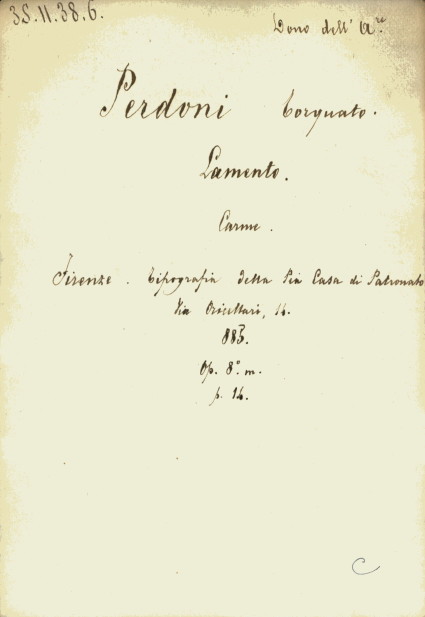 35.11.38.6.
Dono dell' A.re
Perdoni Torquato.
Lamento.
Carme.
Firenze. Tipografia della Pia Casa di Patronato
Via Oricellari, 14.
883.
Op. 8.° m.
p. 14.
C